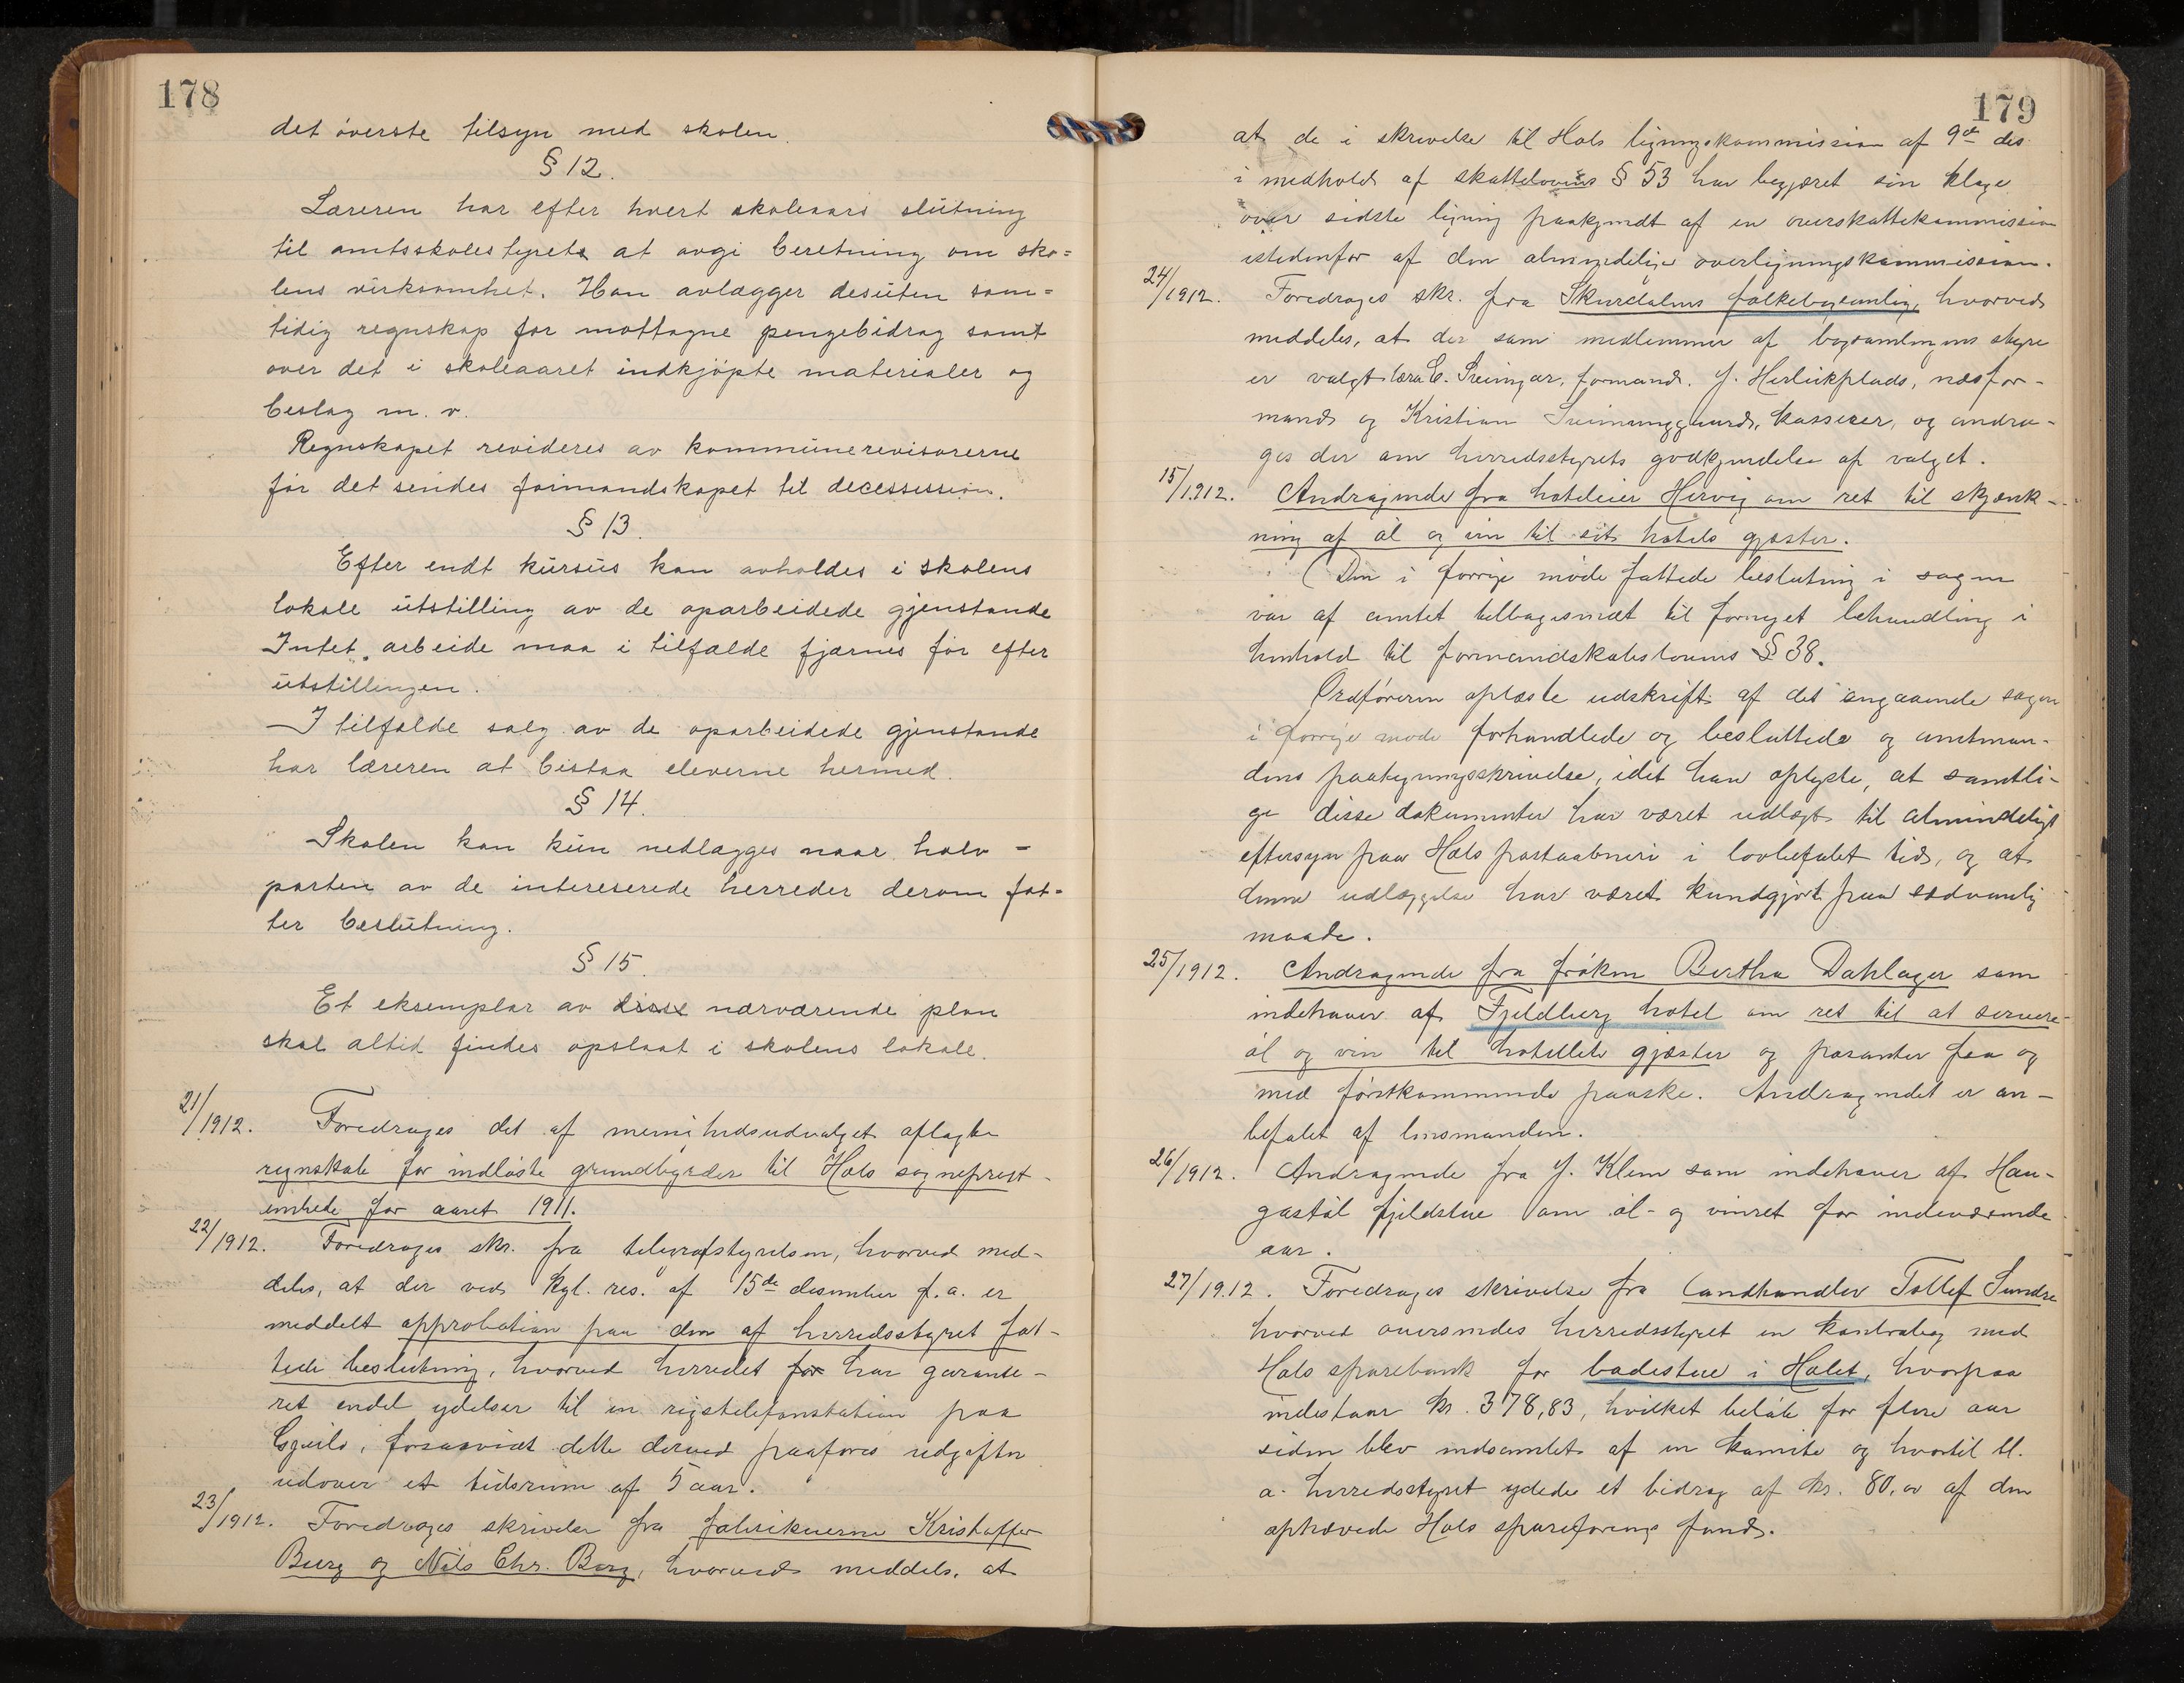 178
det överste tilsyn med skolen.
§ 12.
Læreren har efter hvert skoleaars slutning
til amtsskolestyret at avgi beretning om sko=
lens virksomhet. Han avlægger desuten sam=
tidig regnskap for mottagne pengebidrag samt
over det i skoleaaret indkjöpte materialer og
beslag m. v.
Regnskapet revideres av kommunerevisorerne
för det sendes formandskapet til decessission.
§ 13.
Efter endt kursus kan avholdes i skolens
lokale utstilling av de oparbeidede gjenstande
Intet arbeide maa i tilfælde fjærnes för efter
utstillingen.
I tilfælde salg av de oparbeidede gjenstande
har læreren at bistaa eleverne hermed.
§ 14.
Skolen kan kun nedlægges naar halv -
parten av de intereserede herreder derom fat=
ter beslutning.
§ 15.
Et eksemplar av disse nærværende plan
skal altid findes opslaat i skolens lokale.
21/1912. Foredrages det af menighedsudvalget aflagte
regnskab for indløste grundbyrder til Hols sogneprest-
embede for aaret 1911.
22/1912. Foredrages skr. fra telegrafstyrelsen, hvorved med-
deles, at der ved kgl. res. af 15de desember f.a. er
meddelt approbation paa den af herredsstyret fat-
tede beslutning, hvorved herredet for har garante-
ret endel ydelser til en rigstelefonstation paa
forsaavidt dette derved paaføres udgifter
udover et tidsrum af 5 aar.
23/1912. Foredrages skrivelse fra fabrikeierne Kristoffer
Berg og Nils Chr. Berg, hvorved meddeles, at
179
at de i skrivelse til Hols ligningskommission af 9de ds
i medhold af skattelovens § 53 har begjæret sin klage
over sidste ligning paakjendt af en overskattekommission
istedenfor af den almindelige overligningskommission.
24/1912. Foredrages skr. fra Skurdalens folkebogsamling, hvorved
meddeles, at der som medlemmer af bogsamlingens styre
er valgt lærer E. Sveingar, formand. J. Herleikplads, næsfor-
mand og Kristian kasserer, og andra-
ges der om herredsstyrets godkjendelse af valget.
15/1912. Andragende fra hoteleier Hervig om ret til skjænk-
ning af øl og vin til sit hotels gjæster.
(Den i forrige møde fattede beslutning i sagen
var af amtet tilbagesendt til fornyet behandling i
henhold til formandskabslovens § 38.
Ordføreren oplæste udskrift af det angaaende sagen
i forrige møde forhandlede og besluttede og amtman-
dens paategningsskrivelse, idet han oplyste, at samtli-
ge disse dokumenter har været udlagt til almindeligt
eftersyn paa Hols postaabneri i lovbefalet tid, og at
denne udlæggelse har været kundgjort paa sædvanlig
maade.
25/1912. Andragende fra frøken Bertha Dahlager som
indehaver af Fjeldberg hotel om ret til at servere
øl og vin til hotellets gjæster og pasanter fra og
med førstkommende paaske. Andragendet er an-
befalet af lensmanden.
26/1912. Andragende fra J. Klem som indehaver af Hau-
gastøl fjeldstue om øl- og vinret for indeværende
aar.
27/1912. Foredrages skrivelse fra landhandler Tollef Sundre
hvorved oversendes herredsstyret en kontrabog med
Hols sparebank for badestue i Holet, hvorpaa
indestaar kr. 378,83, hvilket beløb for flere aar
siden blev indsamlet af en komite og hvortil bl.
a. herredsstyret ydede et bidrag af kr. 80,00 af den
ophævede Hols spareforenings fond.